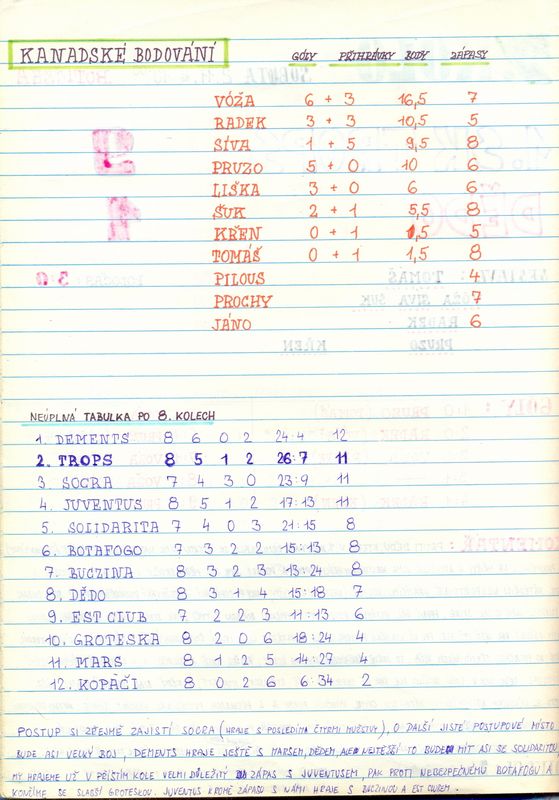 KANADSKÉ BODOVÁNÍ GÓLY PŘIHRÁVKY BODY ZÁPASY
VÓŽA 6 + 3 16,5 7
RADEK 3 + 3 10,5 5
SÍVA 1 + 5 9,5 8
PRUZO 5 + 0 10 6
LIŠKA 3 + 0 6 6
ŠUK 2 + 1 5,5 8
KŘEN 0 + 1 1,5 5
TOMÁŠ 0 + 1 1,5 8
PILOUS 4
PROCHY 7
JÁNO 6
NEÚPLNÁ TABULKA PO 8. KOLECH
1. DEMENTS 8 6 0 2 24:4 12
2. TROPS 8 5 1 2 26:7 11
3. SOCRA 7 4 3 0 23:9 11
4. JUVENTUS 8 5 1 2 17:13 11
5. SOLIDARITA 7 4 0 3 21:15 8
6. BOTAFOGO 7 3 2 2 15:13 8
7. BUCZINA 8 3 2 3 13:24 8
8. DĚDO 8 3 1 4 15:18 7
9. EST CLUB 7 2 2 3 11:13 6
10. GROTESKA 8 2 0 6 18:24 4
11. MARS 8 1 2 5 14:27 4
12. KOPÁČI 8 0 2 6 6:34 2
POSTUP SI ZŘEJMĚ ZAJISTÍ SOCRA (HRAJE S POSLEDÍMA ČTYRMI MUŽSTVY), O DALŠÍ JISTÉ POSTUPOVÉ MÍSTO
BUDE ASI VELKÝ BOJ, DEMENTS HRAJE JEŠTĚ S MARSEM, DĚDEM, ALE NEJTĚŽŠÍ TO BUDE MÍT ASI SE SOLIDARITOU
MY HRAJEME UŽ V PŘÍŠTÍM KOLE VELMI DŮLEŽITÝ ZÁPAS S JUVENTUSEM, PAK PROTI NEBEZPEČNÉMU BOTAFOGU A
KONČÍME SE SLABŠÍ GROTESKOU. JUVENTUS KROMĚ ZÁPASU S NÁMI HRAJE S BUCZINOU A EST CLUBEM.